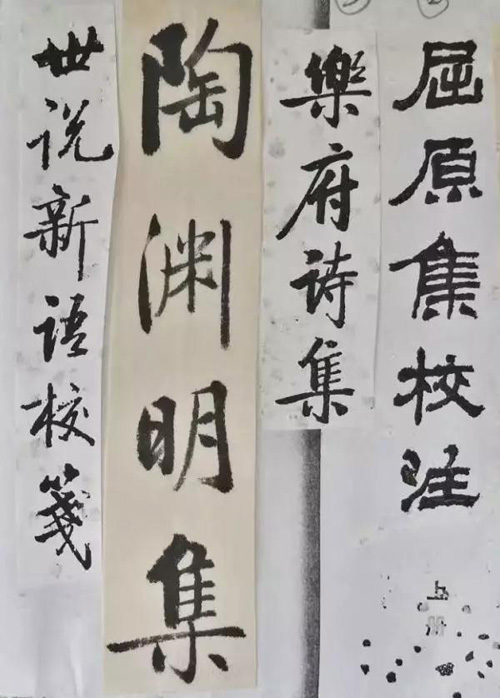 屈原集校注
上册
樂府诗集
陶渊明集
世说新语校箋